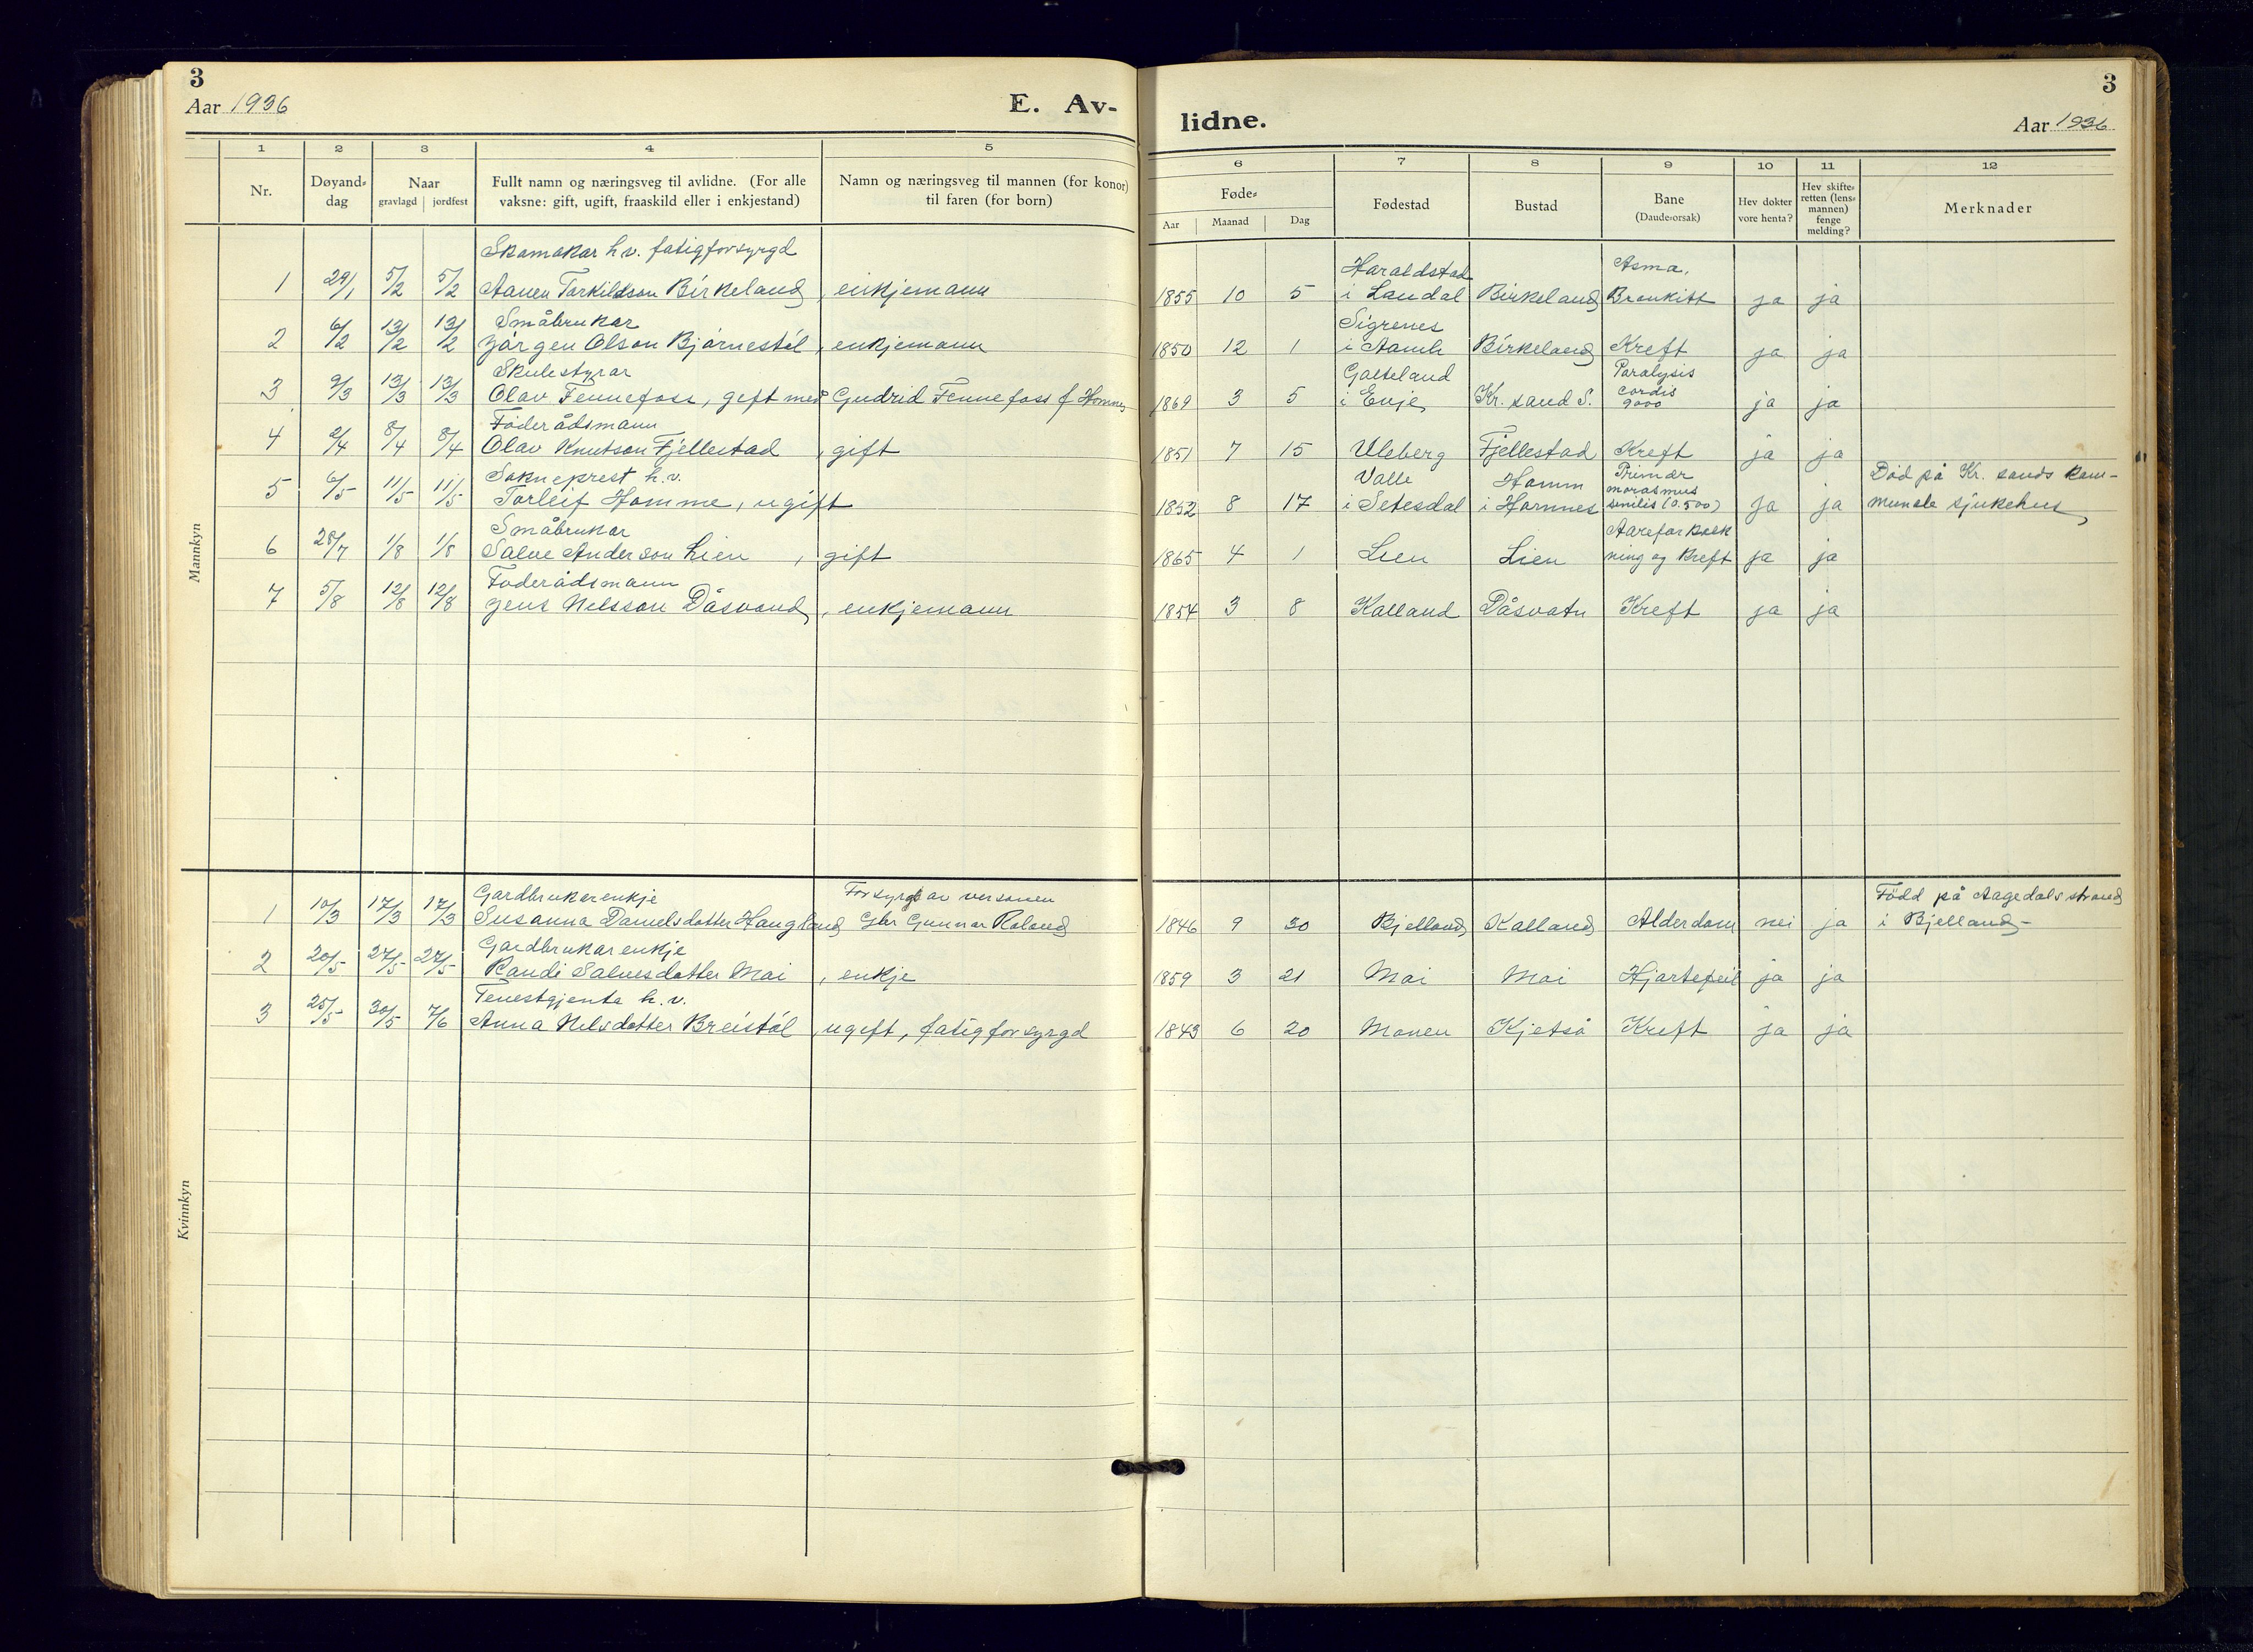 3
Aar 1936
E. Av-
1 2 3 4 5
Nr. Døyand-dag Naar gravlagd jordfest Fullt namn og næringsveg til avlidne. (For alle vaksne: gift, ugift, fraaskild eller i enkjestand) Namn og næringsveg til mannen (for konor) til faren (for born)
Mannkyn
Skomakar h.v. fatigforsyrgd
1 29/1 5/2 5/2 Aanen Torkildson Birkeland, enkjemann
Småbrukar
2 6/2 13/2 13/2 Jörgen Olson Bjørnestöl, enkjemann
Skulestyrar
3 9/3 13/3 13/3 Olav Fennefoss, gift med Gudrid Fennefoss f Homme
Föderådsmann
4 2/4 8/4 8/4 Olav Knutson Fjellestad, gift
Sokneprest h.v.
5 6/5 11/5 11/5 Torleif Homme, ugift
Småbrukar
6 28/7 1/8 1/8 Salve Anderson Lien, gift
Föderådsmann
7 5/8 12/8 12/8 Jens Nilsson Dåsvand, enkjemann
Kvinnkyn
Gardbrukarenkje Forsyrgt av versonen
1 10/3 17/3 17/3 Susanna Danielsdotter Haugland Gbr Gunnar Roland
Gardbrukarenkje
2 20/5 27/5 27/5 Randi Salvesdotter Moi, enkje
Tenestgjenta h.v.
3 25/5 30/5 7/6 Anna Nilsdotter Breistöl, ugift, fatigforsyrgd
3
lidne.
Aar 1936
6 7 8 9 10 11 12
Føde- Aar Maanad Dag Fødestad Bustad Bane (Daude-orsak) Hev dokter vore henta? Hev skifte-retten (lens-mannen) fenge melding? Merknader
Haraldstad Asma,
1855 10 5 i Laudal Birkeland Bronkitt ja ja
Sigrenes
1850 12 1 i Aamli Birkeland Kreft ja ja
Galteland Paralysis
1869 3 5 i Evje Kr.sand S. cordis 9000 ja ja
1851 7 15 Uleberg Fjellestad Kreft ja ja
Valle Homm Primær morasmus Död på Kr.sands kom-
1852 8 17 i Setesdal i Hornnes senilis (0.500) ja ja munale sjukehus
Aareforkalk
1865 4 1 Lien Lien ning og kreft ja ja
1854 3 8 Kalland Dåsvatn Kreft ja ja
Född på Aagedalsstrand
1846 9 30 Bjelland Kalland Alderdom nei ja i Bjelland-
1859 3 21 Moi Moi Hjartefeil ja ja
1843 6 20 Monen Kjetså Kreft ja ja